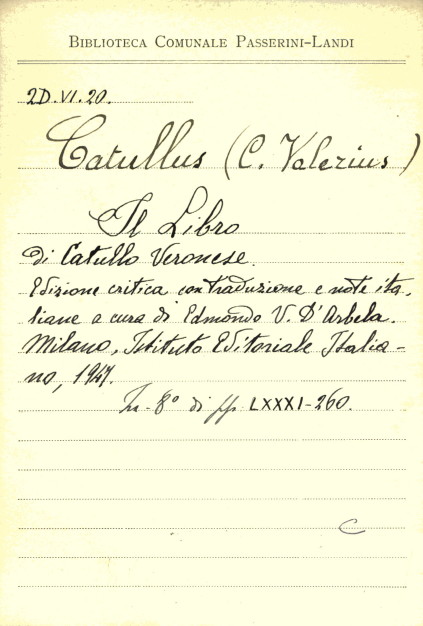 BIBLIOTECA COMUNALE PASSERINI-LANDI
2D.VI.20.
Catullus (C. Valerius)
Il Libro
di Catullo Veronese.
Edizione critica con traduzione e note ita-
liane a cura di Edmondo V. D'Arbela.
Milano, Istituto Editoriale Italia-
no, 1947.
In-8° di pp. LXXXI-260.
C